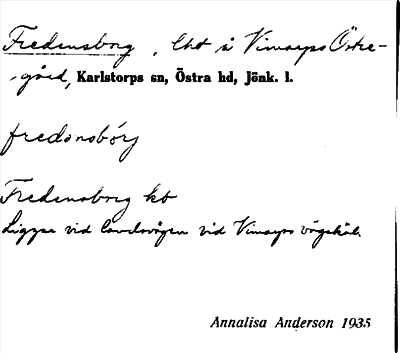 Fredensborg, lht å Vimarps Östre-
gård, Karlstorps sn, Östra hd, Jönk. l.
fredənsbórj
Fredensborg ht
Ligger vid landsvägen vid Vimarps vägskäl.
Annalisa Anderson 1935